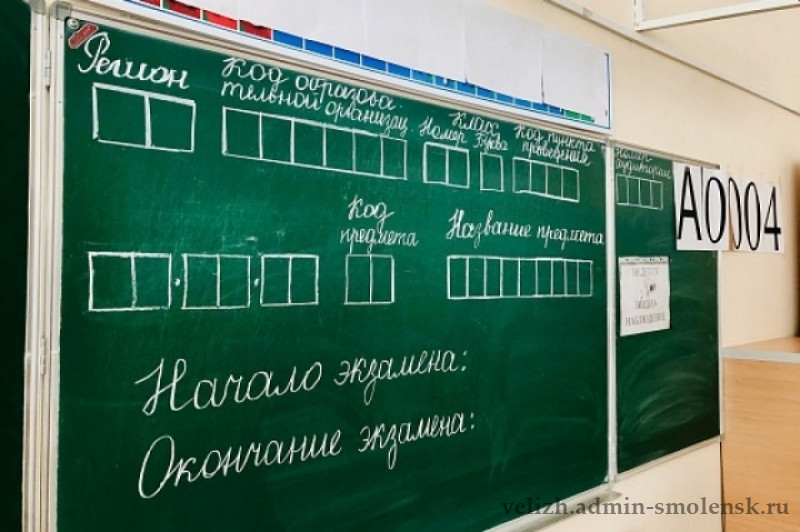 Регион
Код образова-
тельной организац.
Класс
Номер Буква
Код пункта
проведения
Номер
аудитории
А0004
Код
предмета
Название предмета
Начало экзамена:
Окончание экзамена:
ВЕДЕТСЯ
ВИДЕО-
НАБЛЮДЕНИЕ
velizh.admin-smolensk.ru